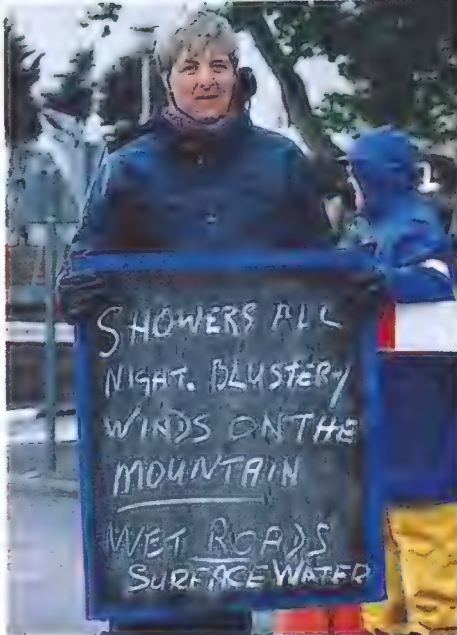 SHOWERS ALL
NIGHT. BLUSTERY
WINDS ON THE
MOUNTAIN
WET ROADS
SURFACE WATER